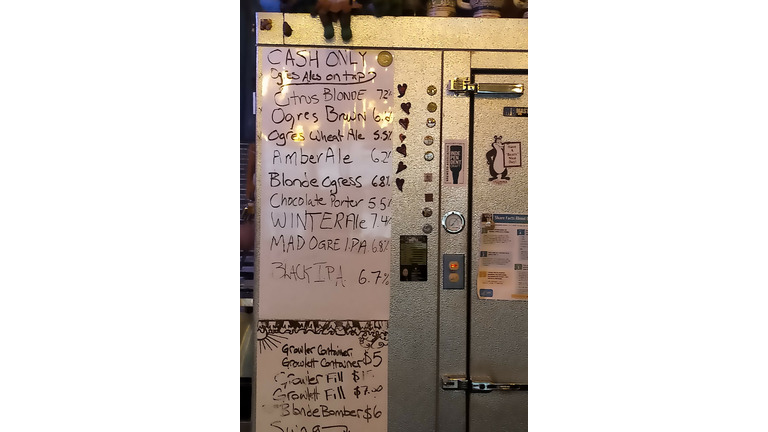 CASH ONLY
Ogres Ales on tap?
Citrus BLONDE 7.2%
Ogres Brown 6.
Ogres Wheat Ale 5.5%
Amber Ale 6.2%
Blonde Ogress 6.8%
Chocolate Porter 5.5%
WINTER Ale 7.4%
MAD OGRE I.P.A. 6.8%
BLACK IPA 6.7%
Growler Container
Growlett Container $5
Growler Fill
Growlett Fill $7.00
Blonde Bomber $6
INDE
PEN
DENT